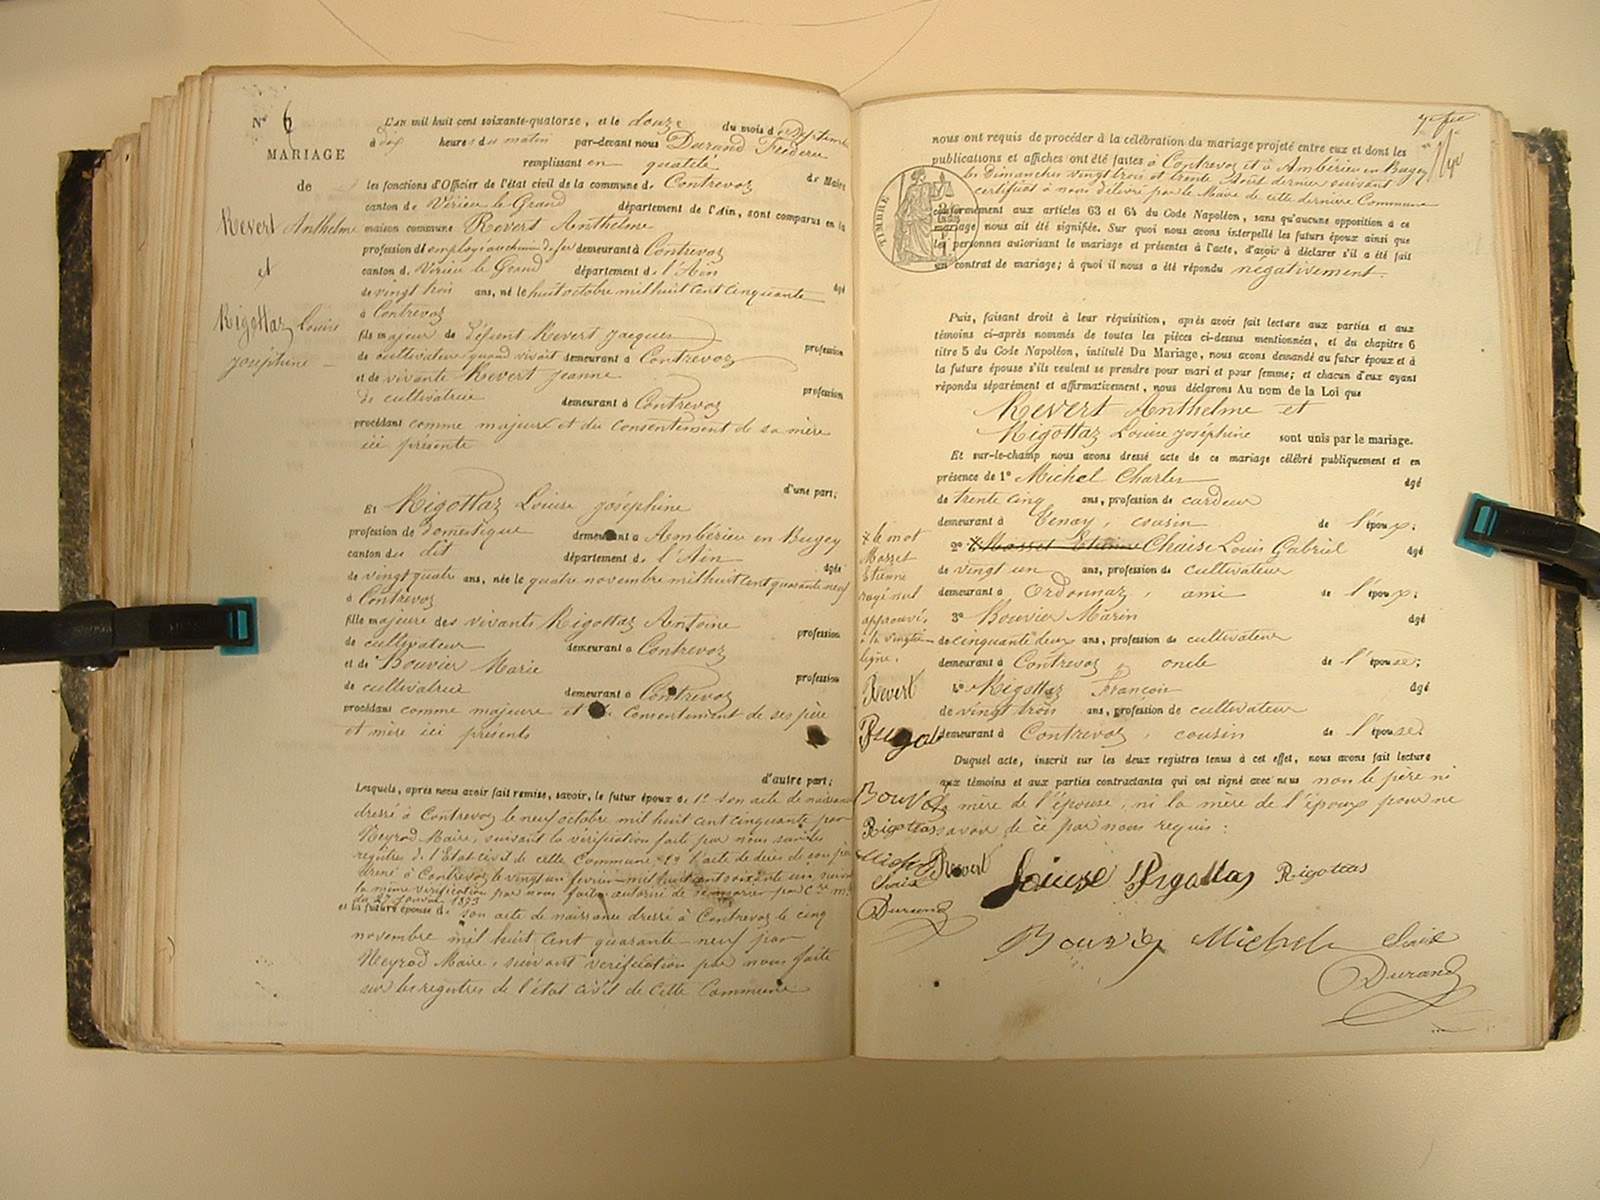 N° 6
MARIAGE
de
Revert Anthelme
et
Rigottaz Louise
Joséphine
L'an mil huit cent soixante-quatorze, et le douze du mois de Septembre
à dix heures du matin par-devant nous Durand Fréderic
remplissant en qualité de Maire
les fonctions d'Officier de l'état civil de la commune de Contrevoz
canton de Virieu le Grand département de l'Ain, sont comparus en la
maison commune Revert Anthelme
profession d'employé au chemin de fer demeurant à Contrevoz
canton de Virieu le Grand département de l'Ain âgé
de vingt trois ans, né le huit octobre mil huit cent cinquante
à Contrevoz
fils majeur de défunt Revert Jacques profession
de cultivateur quand vivait demeurant à Contrevoz
et de vivante Revert Jeanne profession
de cultivatrice demeurant à Contrevoz
procédant comme majeur et du consentement de sa mère
ici présente
d'une part;
Et Rigottaz Louise Joséphine
profession de domestique demeurant à Ambérieu en Bugey
canton du dit département de l'Ain âgée
de vingt quatre ans, née le quatre novembre mil huit cent quarante neuf
à Contrevoz
fille majeure des vivants Rigottaz Antoine profession
de cultivateur demeurant à Contrevoz
et de Bouvier Marie profession
de cultivatrice demeurant à Contrevoz
procédant comme majeure et du Consentement de ses père
et mère ici présents
d'autre part;
Lesquels, après nous avoir fait remise, savoir, le futur époux de 1° son acte de naissance
dressé à Contrevoz le neuf octobre mil huit cent cinquante par
Neyrod Maire, suivant la vérification faite par nous sur les
registres de l'Etat civil de cette Commune 2° l'acte de décès de son père
dressé à Contrevoz le vingt un février mil huit cent soixante un suivant
la même vérification par nous faite autorisé de se marier par
du 27 janvier 1873
et la future épouse de son acte de naissance dressé à Contrevoz le cinq
novembre mil huit cent quarante neuf par
Neyrod Maire, suivant vérification par nous faite
sur les registres de l'état civil de cette Commune
nous ont requis de procéder à la célébration du mariage projeté entre eux et dont les
publications et affiches ont été faites à Contrevoz et à Ambérieu en Bugey
les Dimanches vingt trois et trente Août dernier suivant
certificat à nous délivré par le Maire de cette dernière Commune
TIMBRE
conformément aux articles 63 et 64 du Code Napoléon, sans qu'aucune opposition à ce
mariage nous ait été signifiée. Sur quoi nous avons interpellé les futurs époux ainsi que
les personnes autorisant le mariage et présentes à l'acte, d'avoir à déclarer s'il a été fait
un contrat de mariage; à quoi il nous a été répondu négativement.
Puis, faisant droit à leur réquisition, après avoir fait lecture aux parties et aux
témoins ci-après nommés de toutes les pièces ci-dessus mentionnées, et du chapitre 6
titre 5 du Code Napoléon, intitulé Du Mariage, nous avons demandé au futur époux et à
la future épouse s'ils veulent se prendre pour mari et pour femme; et chacun d'eux ayant
répondu séparément et affirmativement, nous déclarons Au nom de la Loi que
Revert Anthelme et
Rigottaz Louise Joséphine sont unis par le mariage.
Et sur-le-champ nous avons dressé acte de ce mariage célébré publiquement et en
présence de 1° Michel Charles âgé
de trente cinq ans, profession de cardeur
demeurant à Tenay, cousin de l'époux;
2° Masset Etienne Chaise Louis Gabriel âgé
de vingt un ans, profession de cultivateur
demeurant à Ordonnaz, ami de l'époux;
3° Bouvier Marin âgé
de cinquante deux ans, profession de cultivateur
demeurant à Contrevoz, oncle de l'épouse;
4° Rigottaz François âgé
de vingt trois ans, profession de cultivateur
demeurant à Contrevoz, cousin de l'épouse.
Duquel acte, inscrit sur les deux registres tenus à cet effet, nous avons fait lecture
aux témoins et aux parties contractantes qui ont signé avec nous non le père ni
la mère de l'épouse, ni la mère de l'époux pour ne
savoir de ce par nous requis:
x le mot
Masset
Etienne
rayé nul
approuvé
à la vingtième
ligne.
Revert
Bouvier
Rigottas
Michel
Chaise
Durand
Revert Louise Rigottaz Rigottas
Bouvier Michel Chaise
Durand